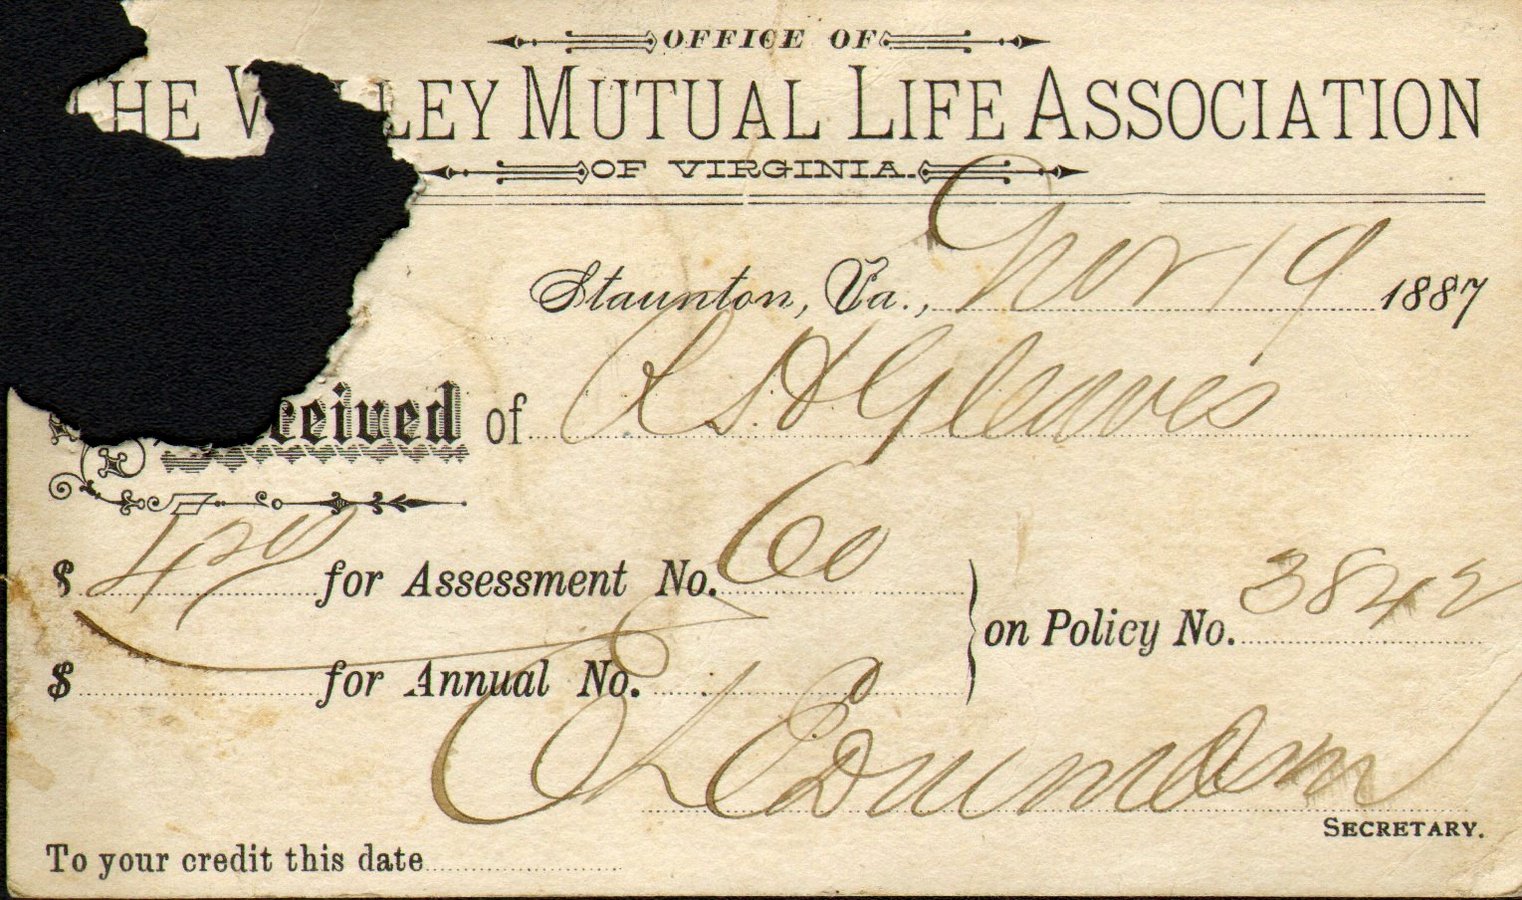 OFFICE OF
THE VALLEY MUTUAL LIFE ASSOCIATION
OF VIRGINIA.
Staunton, Va., Nov 19 1887
Received of R S H Gleaves
$ 4 20 for Assessment No. 60
on Policy No. 3842
$ for Annual No.
SECRETARY.
To your credit this date